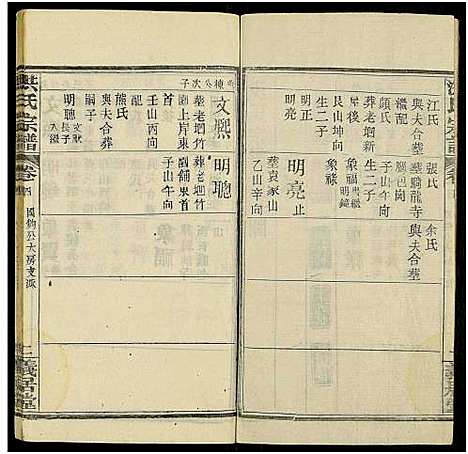 江氏
與夫合塟
繼配
顏氏
葬老堋新
屋後
艮山坤向
生二子
明正
明亮
張氏
塟騎龍寺
廟包崗
子山午向
生二子
象福 出繼明鏡
象祿
余氏
與夫合塟
明亮 止
塟袁家山
乙山辛向
棟公次子
文熈
塟老堋竹
園上岸東
首
壬山丙向
熊氏
與夫合葬
嗣子
明聰 文猷長子入繼
明聰
葬老堋竹
園舖東首
子山午向
洪氏宗譜
卷四
國鈞公大房支派
義居堂